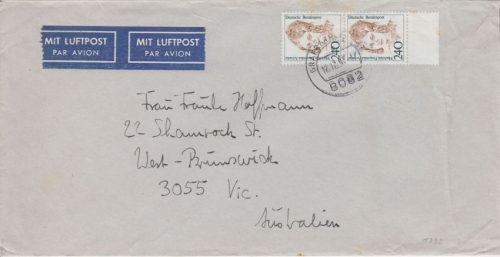 MIT LUFTPOST MIT LUFTPOST
PAR AVION PAR AVION
Deutsche Bundespost Deutsche Bundespost
240 240
8082
Frau Frauke Hoffmann
22 Shamrock St.
West-Brunswick
3055 Vic.
Australien